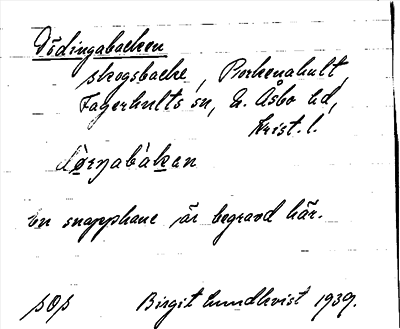 Dödingabacken
skogsbacke, Porkenahult,
Fagerhults sn, N. Åsbo hd,
Krist. l.
En snapphane är begravd här.
sos Birgit Lundkvist 1939.